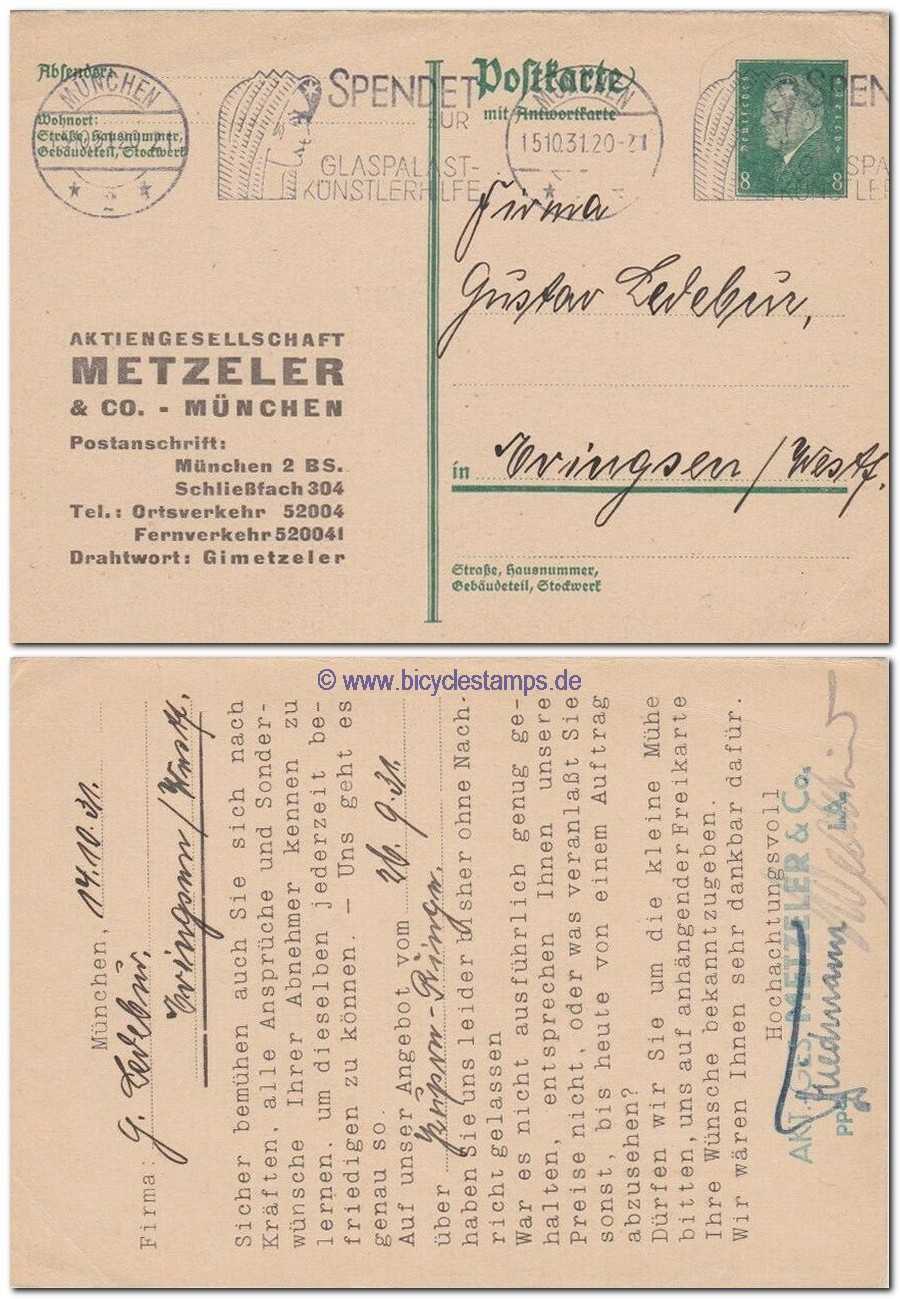 Absender:
Wohnort:
Straße, Hausnummer,
Gebäudeteil, Stockwerk
MÜNCHEN
2
SPENDET
ZUR
GLASPALAST-
KÜNSTLERHILFE
Postkarte
mit Antwortkarte
MÜNCHEN
15.10.31.20-21
SPEN
Deutsches Reich
8 8
Firma
Gustav Ledebur,
in Evingsen / Westf.
Straße, Hausnummer,
Gebäudeteil, Stockwerk
AKTIENGESELLSCHAFT
METZELER
& CO. - MÜNCHEN
Postanschrift:
München 2 BS.
Schließfach 304
Tel.: Ortsverkehr 52004
Fernverkehr 520041
Drahtwort: Gimetzeler
© www.bicyclestamps.de
München, 14.10.31.
Firma: G. Ledebur.
Evingsen / Westf.
Sicher bemühen auch Sie sich nach
Kräften, alle Ansprüche und Sonder-
wünsche Ihrer Abnehmer kennen zu
lernen, um dieselben jederzeit be-
friedigen zu können. — Uns geht es
genau so.
Auf unser Angebot vom 26.9.31.
über
haben Sie uns leider bisher ohne Nach-
richt gelassen
War es nicht ausführlich genug ge-
halten, entsprechen Ihnen unsere
Preise nicht, oder was veranlaßt Sie
sonst, bis heute von einem Auftrag
abzusehen?
Dürfen wir Sie um die kleine Mühe
bitten, uns auf anhängender Freikarte
Ihre Wünsche bekanntzugeben.
Wir wären Ihnen sehr dankbar dafür.
Hochachtungsvoll
AKT. GES. METZELER & Co.
PPA. I.A.